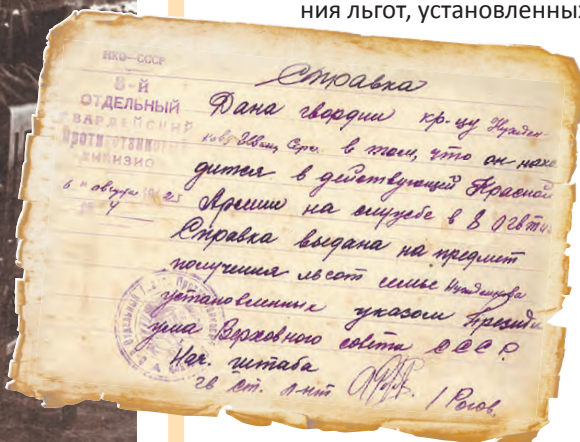 ния льгот, установленных
НКО—СССР
8-й
ОТДЕЛЬНЫЙ
ГВАРДЕЙСКИЙ
ПРОТИВОТАНКОВЫЙ
ДИВИЗИО
Справка
Дана гвардии кр-цу
в том, что он нахо
дится в действующей Красной
Армии на службе в 8
Справка выдана на предмет
получения льгот семье
установленных указом Президи
ума Верховного совета СССР.
Нач. штаба
гв ст. л-нт / Рогов.